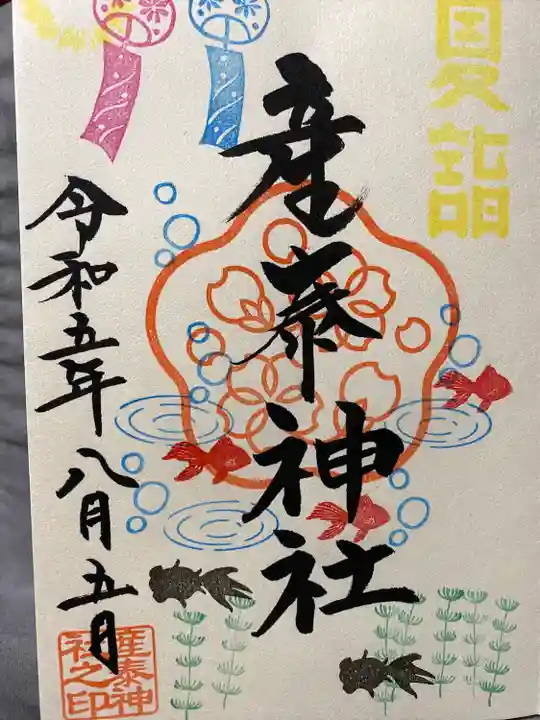 夏詣
産泰神社
令和五年 八月五日
産泰神
社之印